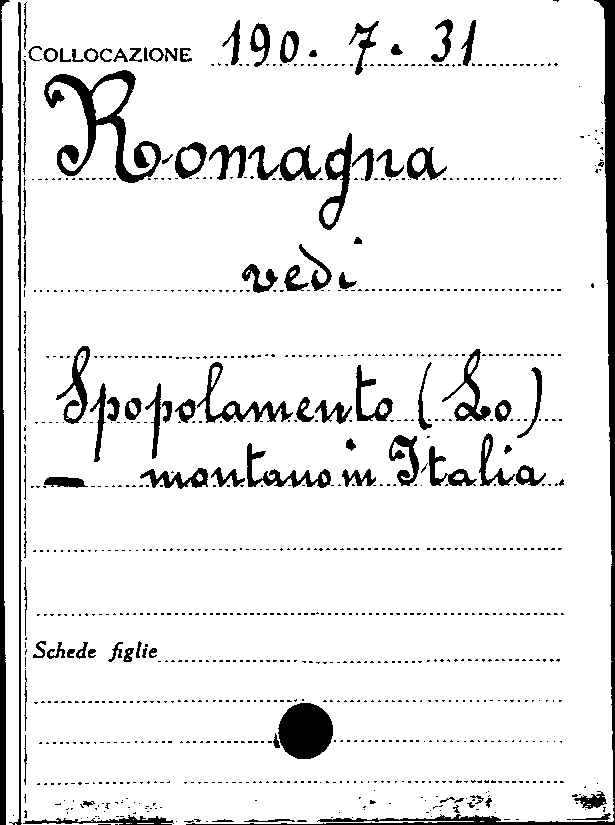 COLLOCAZIONE 190. 7. 31
Romagna
vedi
Spopolamento (Lo)
— montano in Italia.
Schede figlie